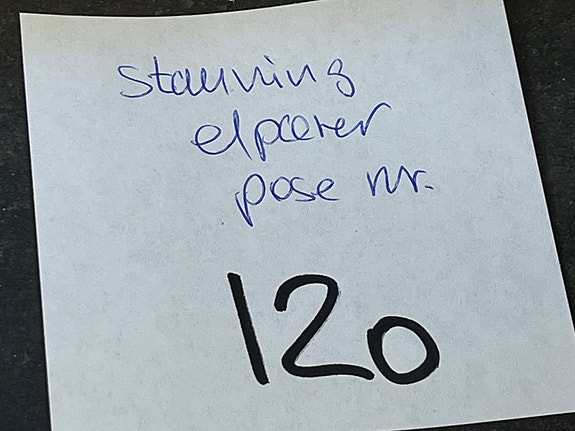 Stauning
elpærer
pose nr.
120